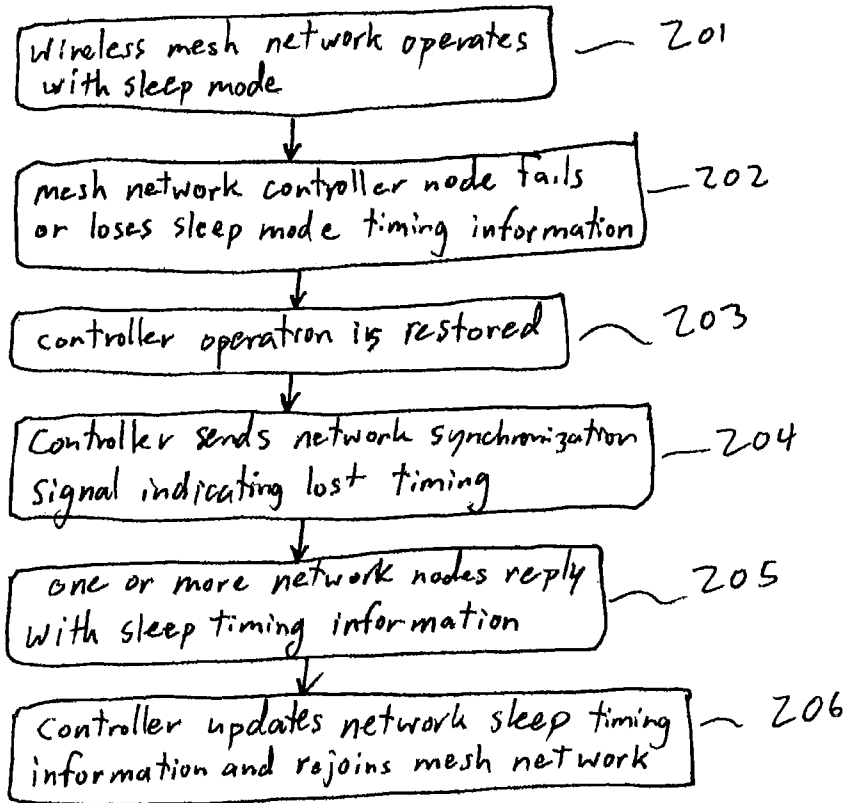 wireless mesh network operates 201
with sleep mode
mesh network controller node fails 202
or loses sleep mode timing information
controller operation is restored 203
Controller sends network synchronization 204
signal indicating lost timing
one or more network nodes reply 205
with sleep timing information
Controller updates network sleep timing 206
information and rejoins mesh network